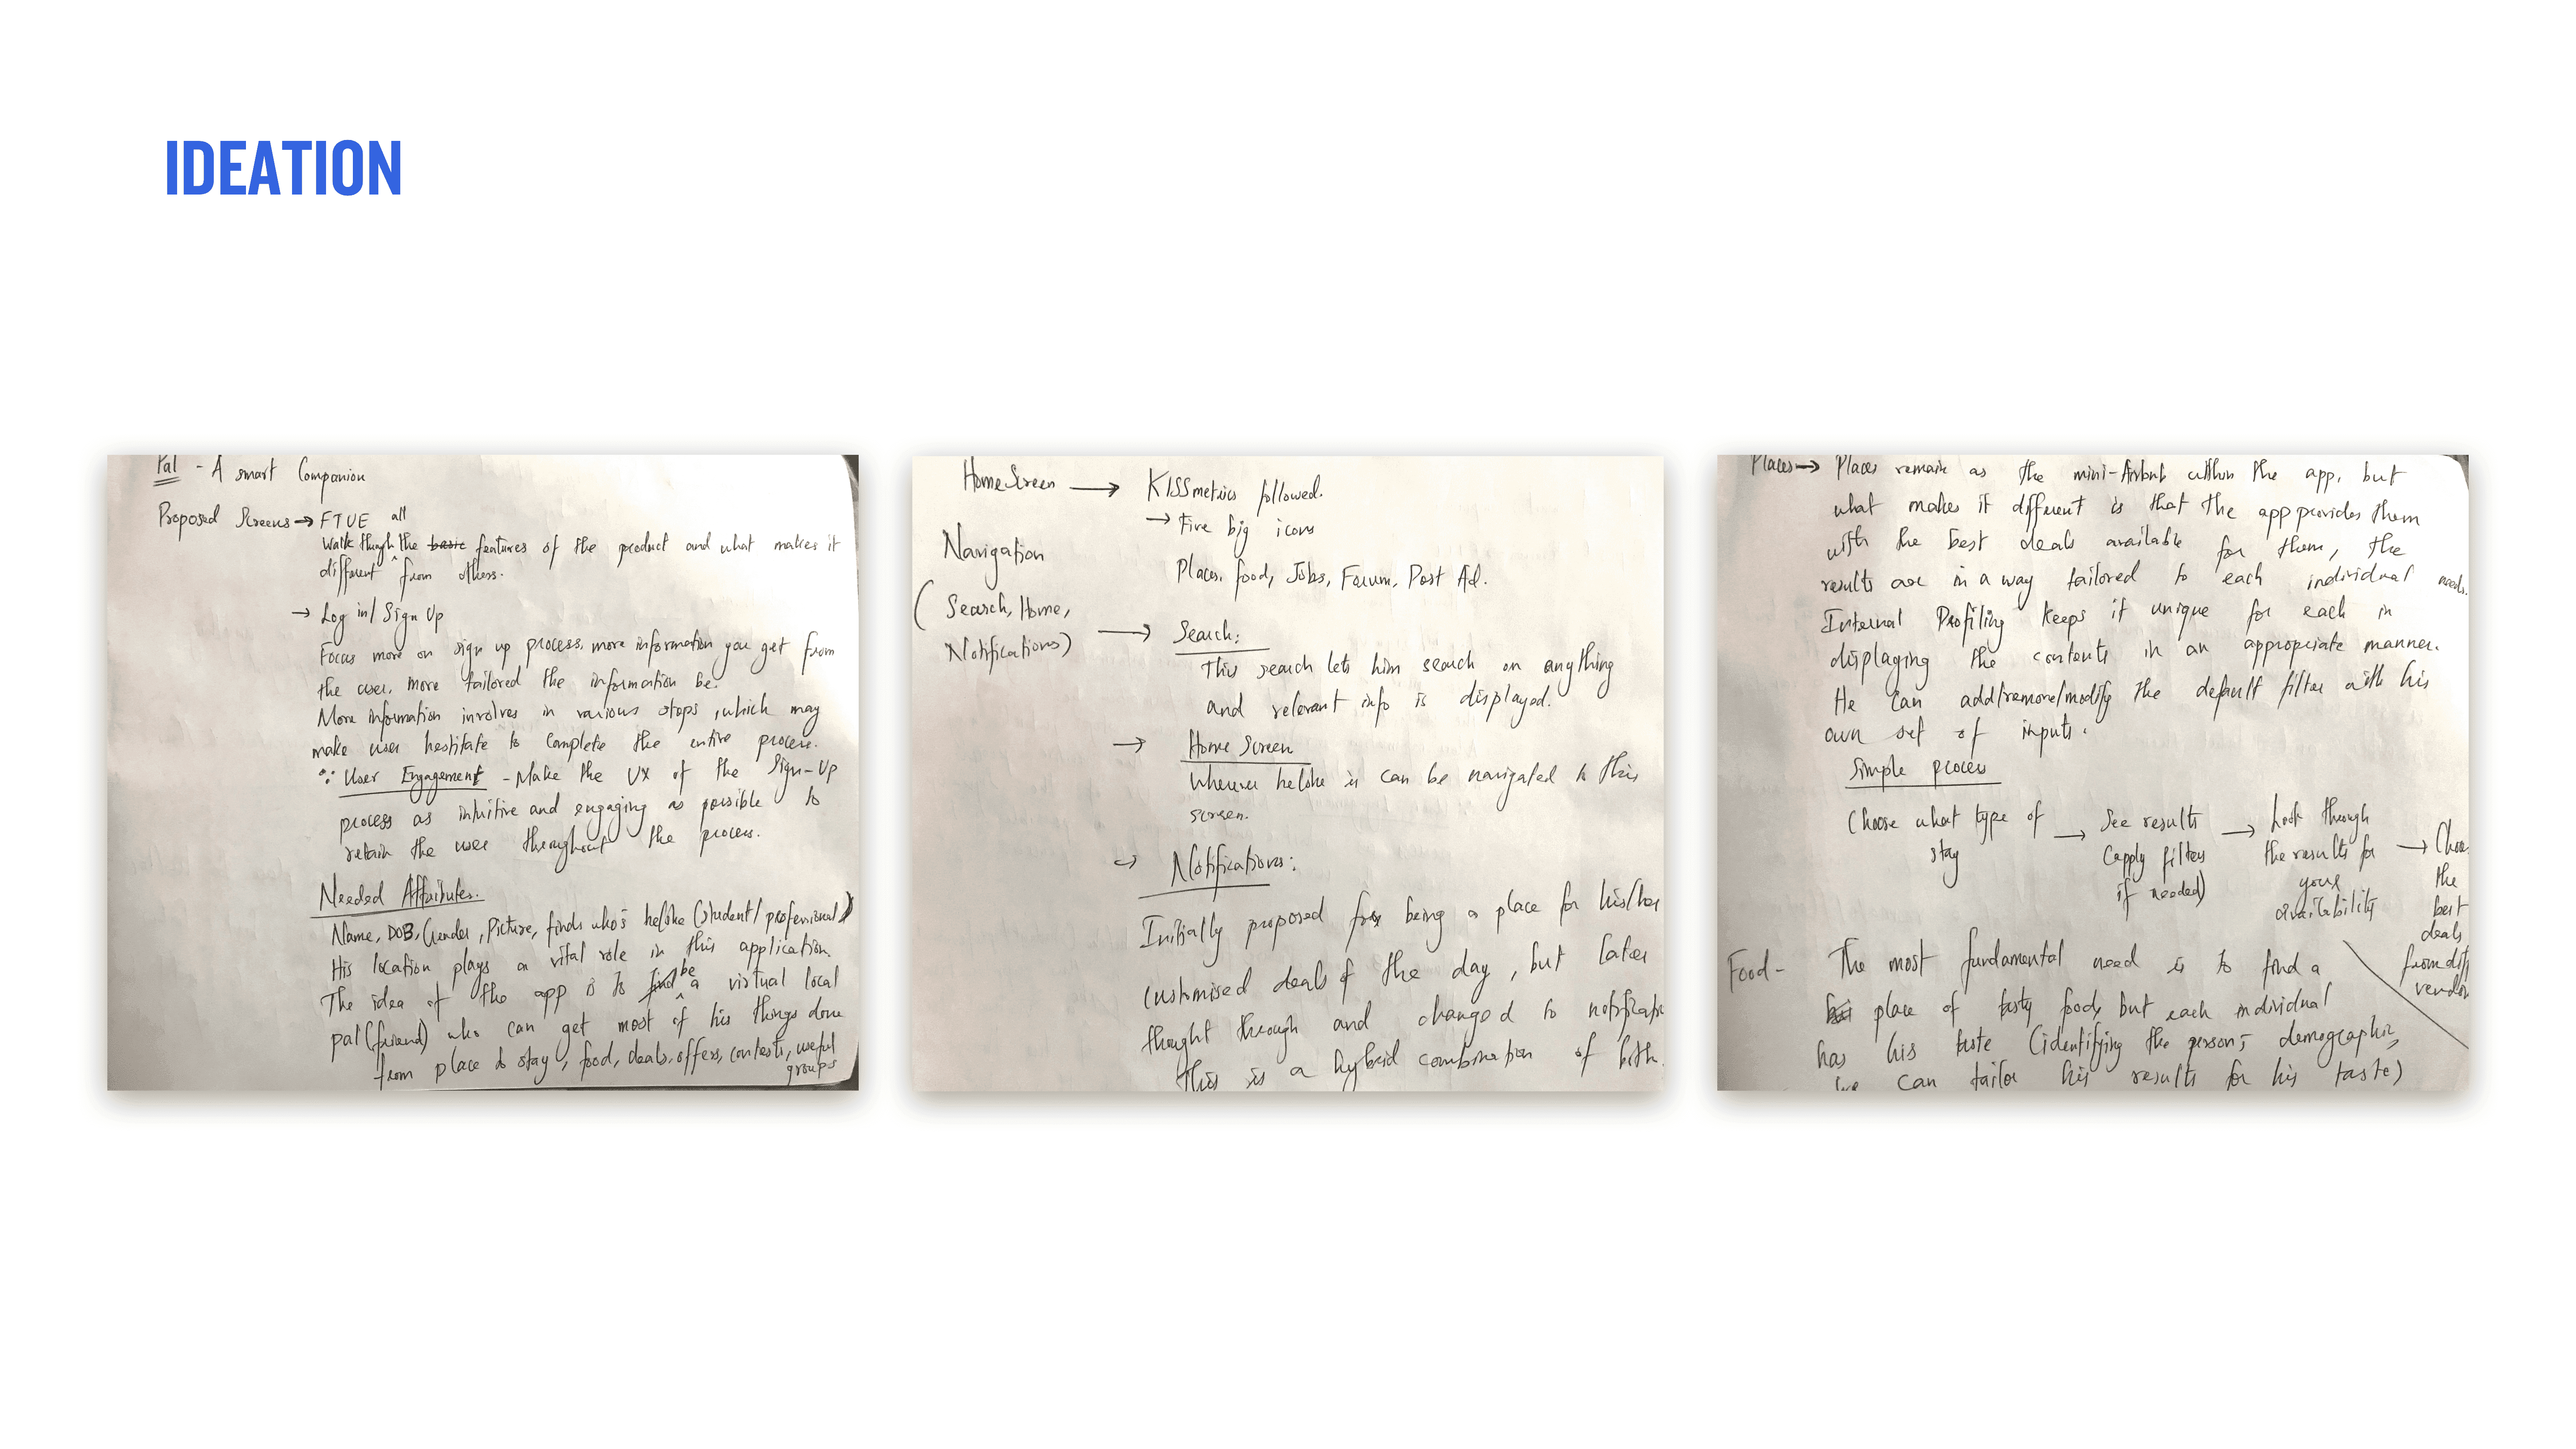 IDEATION
Pal - A smart Companion
Proposed Screens → FTUE
all
Walk though the basic features of the product and what makes it
different from others.
→ Log in/Sign Up
Focus more on sign up process, more information you get from
the user, more tailored the information be.
More information involves in various stops, which may
make user hestitate to complete the entire process.
∵ User Engagement - Make the UX of the Sign-Up
process as intuitive and engaging as possible to
retain the user throughout the process.
Needed Attributes.
Name, DOB, Gender, Picture, finds who's he/she (student/professional)
His location plays a vital role in this application.
be
The idea of the app is to find a virtual local
pal (friend) who can get most of his things done
from place to stay, food, deals, offers, contests, useful
groups
HomeScreen → KISSmetrics followed.
→ Five big icons
Places, food, Jobs, Forum, Post Ad.
Navigation
(Search, Home,
Notifications)
→ Search:
This search lets him search on anything
and relevant info is displayed.
→ Home Screen
Wherever he/she is can be navigated to this
screen.
→ Notifications:
Initially proposed for being a place for his/her
customised deals of the day, but later
thought through and changed to
this is a hybrid combination of both.
Places → Places remain as the mini-Airbnb within the app, but
what makes it different is that the app provides them
with the best deals available for them, the
results are in a way tailored to each individual needs.
Internal Profiling keeps it unique for each in
displaying the contents in an appropriate manner.
He can add/remove/modify the default filter with his
own set of inputs.
Simple process
Choose what type of
stay
→ See results
(apply filters
if needed)
→ Look through
the results for
your
availability
→
the
best
deals
from
Food - The most fundamental need is to find a
place of tasty food, but each individual
has his taste (identifying the person's demographic,
we can tailor his results for his taste)